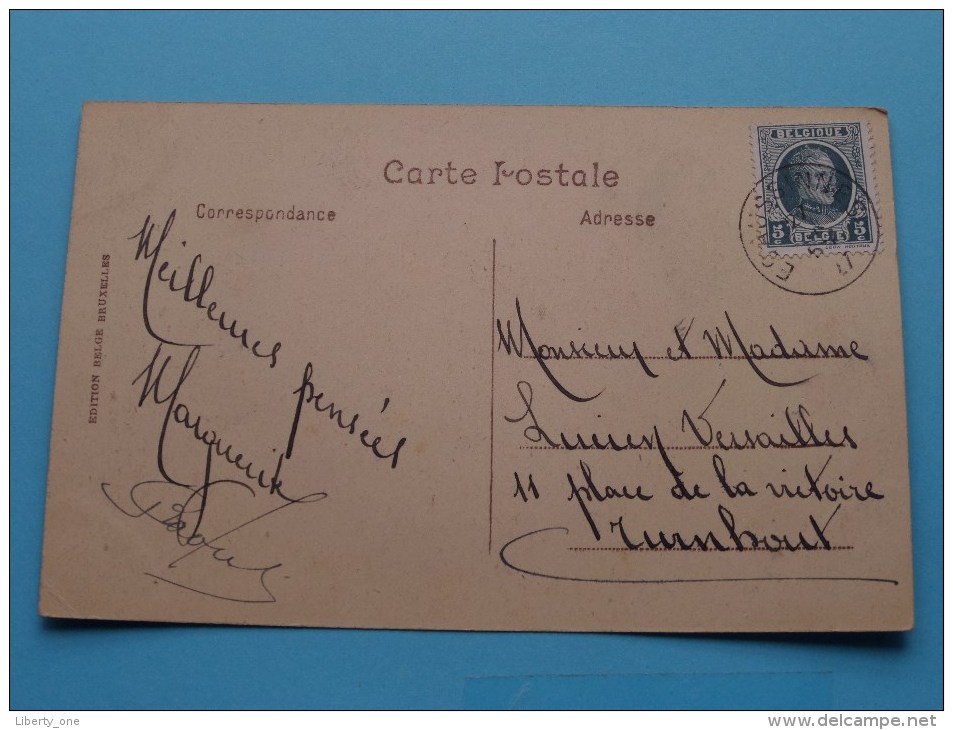 Carte Postale
Correspondance
Adresse
BELGIQUE
5c BELGIË 5c
EDITION BELGE BRUXELLES
Meilleures
pensées
Marguerite
Monsieur et Madame
Lucien Versailles
11 place de la victoire
Turnhout
Liberty_one
www.delcampe.net